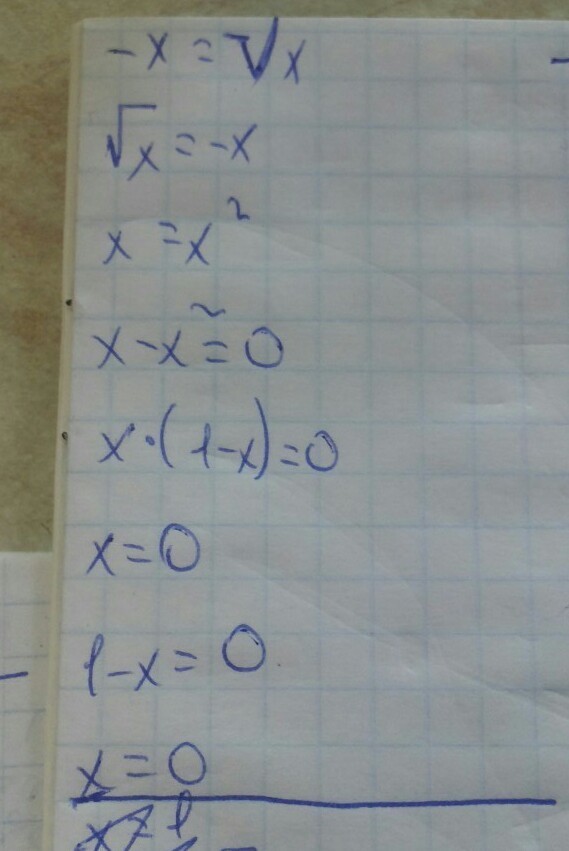 -x = √x
√x = -x
x = x²
x - x² = 0
x · (1-x) = 0
x = 0
1-x = 0
x = 0